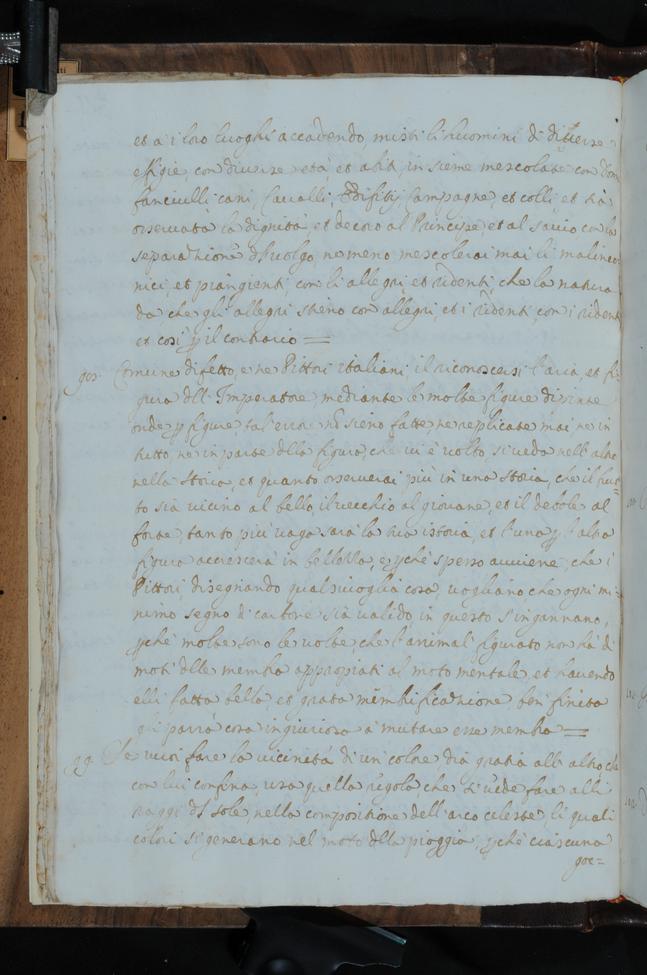 et a i loro luoghi accadendo, misti li huomini di diverse
effigie, con diverse età, et abiti, insieme mescolate con don
fanciulli cani, Cavalli, Edifitij Campagne, et colli, et sia
osservata la dignità et decoro al Principe, et al savio con la
separatione dl vuolgo, ne meno mescolerai mai li malinco
nici, et piangienti, con li allegri, et ridenti, che la natura
da che gli allegri stieno con allegri, et i ridenti con i ridenti
et così p il contrario =
98. Comune difetto, e ne Pittori italiani il riconoscersi l'aria, et fi-
gura dll Imperatore, mediante le molte figure dipinte
onde p figure, tal errore nō sieno fatte ne replicate mai, ne in
tutto, ne in parte dlla figura, che vi è volto, si veda nell'altro
nella storia, et quanto osserverai più in una storia, che il brut-
to sia vicino al bello, il vecchio al giovane, et il debole al
forte, tanto più vaga sarà la tua istoria, et l'una p l'altra
figura accrescerà in bellezza, e pchè spesso avviene, che i
Pittori, disegnando qual sivoglia cosa, vogliano che ogni mi-
nimo segno di carbone sia valido, in questo s'ingannano,
pche molte sono le volte, che l'animal' figurato non hà di
moti dlle membra appropiati al moto mentale, et havendo
elli fatta bella et grata mēmbrificatione ben finita
gli parrà cosa ingiuriosa à mutare esse membra =
99. Se vuoi fare la vicinità di un colore dia gratia all' altro che
con lui confina, usa quella regola che si vede fare alli
raggi dl Sole, nella compositione dell'arco celeste li quali
colori si generano nel moto dlla pioggia, pchè ciascuna
goc=